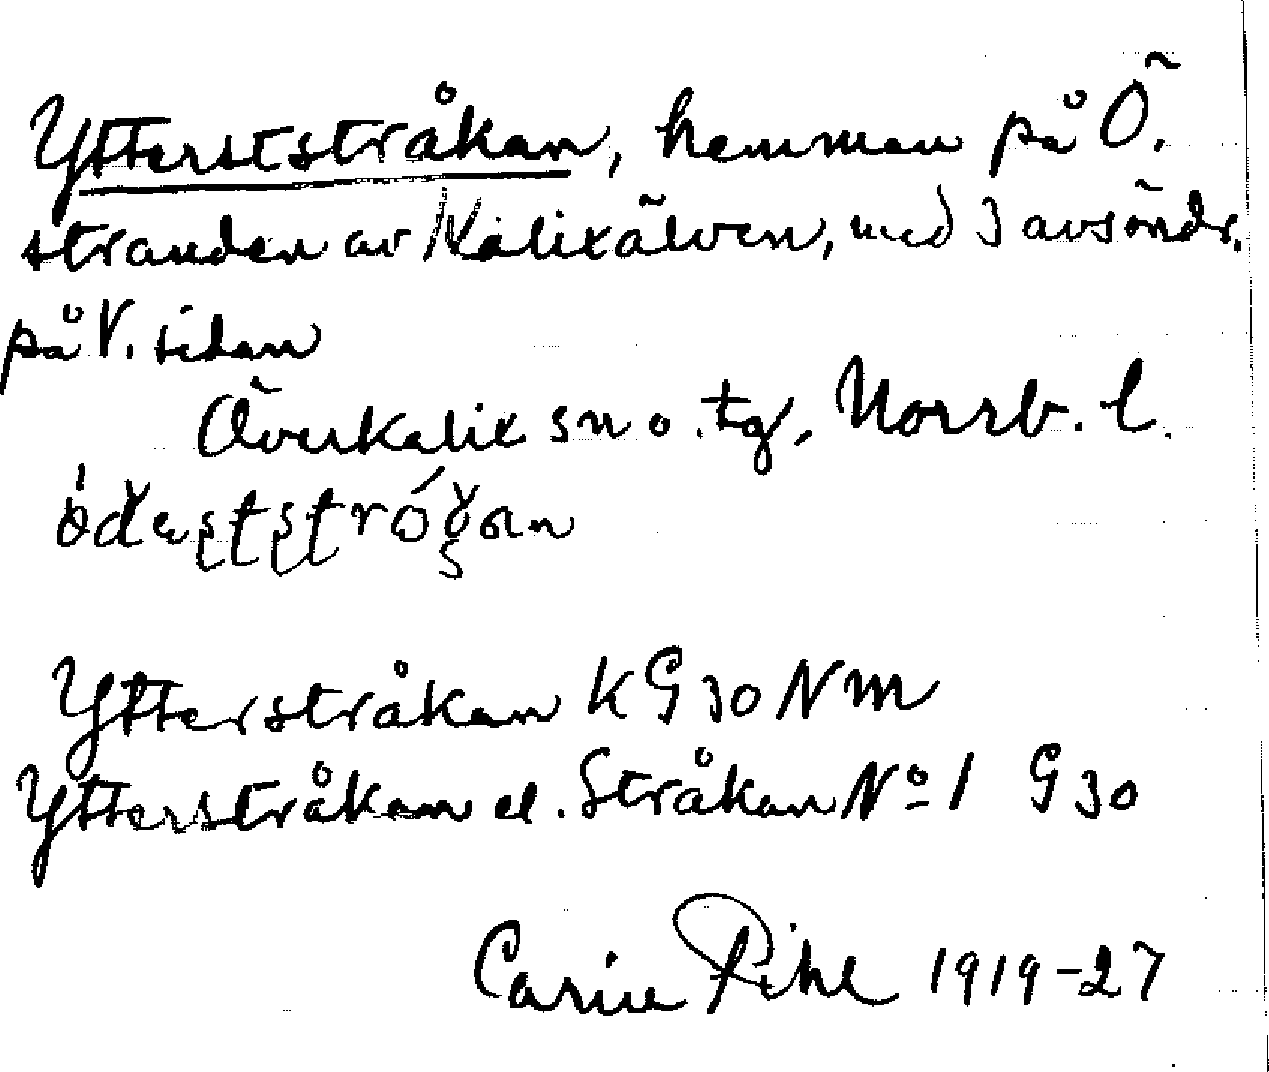 Ytterststråkan, hemman på Ö.
stranden av Kalixälven, med 3 avsöndr.
på V. sidan
Överkalix sn o. tg, Norrb. l.
Ytterstråkan k G 30 N m
Ytterstråkan el. Stråkan No 1 G 30
Carin Pihl 1919-27